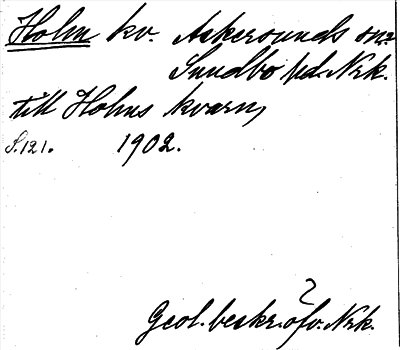 Holm kv. Askersunds sn:
Sundbo hd. Nrk.
till Holms kvarn,
S. 121. 1902.
Geol. beskr. öfv. Nrk.